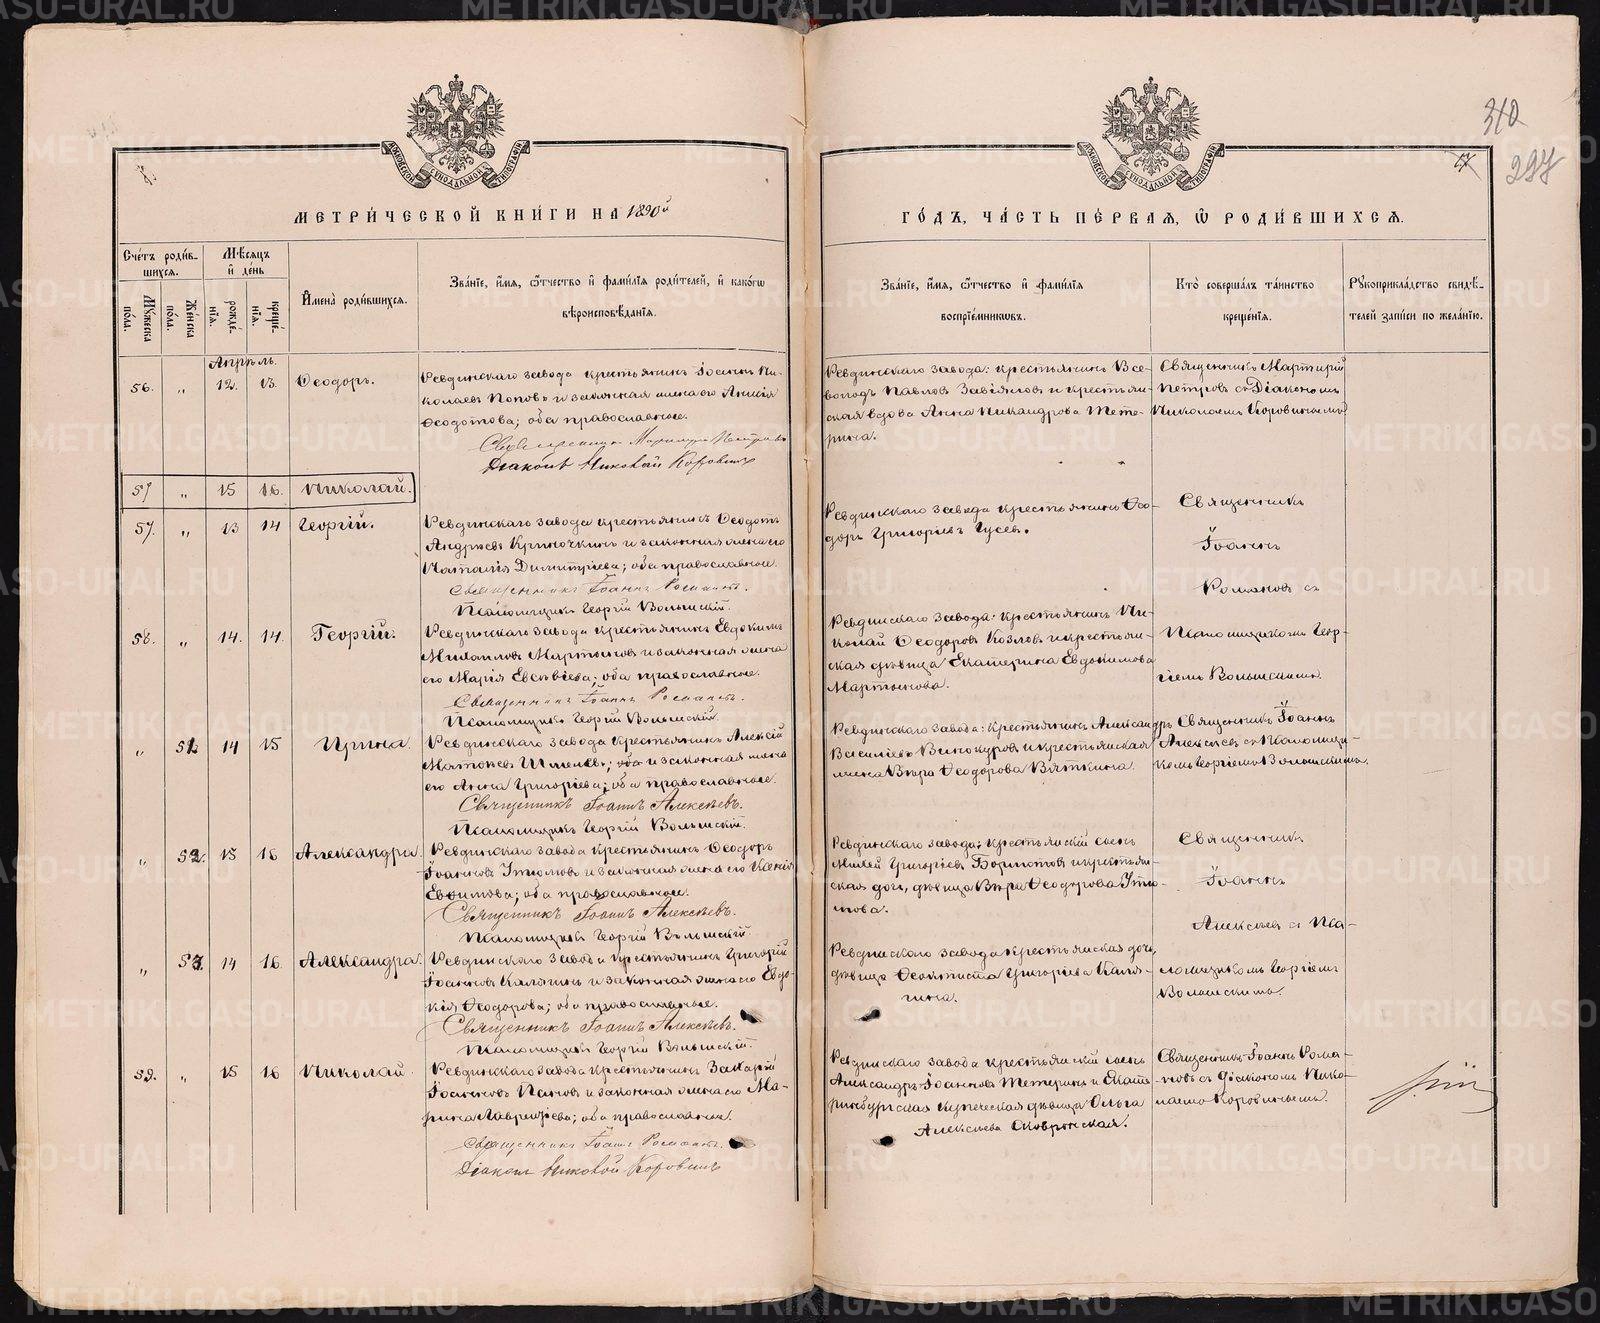 310
297
57
МЕТРИ́ЧЕСКОЙ КНИ́ГИ НА 1890й
ГО́ДЪ, ЧА́СТЬ ПЕ́РВАѦ, Ѽ РОДИ́ВШИХСѦ.
Сче́тъ роди́в-
шихсѧ.
Мѣ́сѧцъ
и де́нь
Мꙋ́жеска по́ла.
Же́нска по́ла.
рожде́-нїѧ.
креще́-нїѧ.
Имена̀ роди́вшихсѧ.
Зва́нїе, и́мѧ, ѻ́тчество и фами́лїѧ роди́телей, и како́гѡ
вѣроисповѣ́данїѧ.
Зва́нїе, и́мѧ, ѻ́тчество и фами́лїѧ
воспрїе́мникѡвъ.
Кто̀ соверша́лъ та́инство
креще́нїѧ.
Рꙋкоприкла́дство свидѣ́-
телей за́писи по жела́нїю.
Апрѣль.
56. „ 12. 13. Ѳеодоръ.
Ревдинскаго завода крестьянинъ Іоаннъ Ни-
колаевъ Поповъ и законная жена его Анисія
Ѳеодотова; оба православные.
Священникъ Мартирій Петровъ
Діаконъ Николай Коровинъ
Ревдинскаго завода: крестьянинъ Все-
володъ Павловъ Завьяловъ и крестьян-
ская вдова Анна Никандрова Тете-
рина.
Священникъ Мартирій
Петровъ съ Діакономъ
Николаемъ Коровинымъ
57 „ 15 16. Николай.
57. „ 13 14 Георгій.
Ревдинскаго завода крестьянинъ Ѳеодотъ
Андреевъ Криночкинъ и законная жена его
Наталія Димитріева; оба православные.
Священникъ Іоаннъ Романовъ.
Псаломщикъ Георгій Волынскій.
Ревдинскаго завода крестьянинъ Ѳео-
доръ Григорьевъ Гусевъ.
Священникъ
Іоаннъ
Романовъ съ
58. „ 14. 14. Георгій.
Ревдинскаго завода крестьянинъ Евдокимъ
Михаиловъ Мартыновъ и законная жена
его Марія Евсевіева; оба православные.
Священникъ Іоаннъ Романовъ.
Псаломщикъ Георгій Волынскій.
Ревдинскаго завода: крестьянинъ Ни-
колай Ѳеодоровъ Козловъ и крестьян-
ская дѣвица Екатерина Евдокимова
Мартынова.
Псаломщикомъ Геор-
гіемъ Волынскимъ.
„ 51. 14 15 Ирина.
Ревдинскаго завода крестьянинъ Алексій
его Анна Григорьева; оба православные.
Священникъ Іоаннъ Алексѣевъ.
Псаломщикъ Георгій Волынскій.
Ревдинскаго завода: крестьянинъ Александръ
Василіевъ Винокуровъ и крестьянская
жена Вѣра Ѳеодорова Вяткина.
Священникъ Іоаннъ
Алексѣевъ съ Псаломщи-
комъ Георгіемъ Волынскимъ.
„ 52. 15 16 Александра.
Ревдинскаго завода крестьянинъ Ѳеодоръ
Іоанновъ Утюмовъ и законная жена его Ксенія
Евѳимова; оба православные.
Священникъ Іоаннъ Алексѣевъ.
Псаломщикъ Георгій Волынскій.
Ревдинскаго завода: крестьянскій сынъ
Михей Григоріевъ Бормотовъ и крестьян-
ская дочь, дѣвица Вѣра Ѳеодорова Утю-
мова.
Священникъ
Іоаннъ
Алексѣевъ съ Пса-
„ 53. 14 16. Александра.
Ревдинскаго завода крестьянинъ Григорій
Іоанновъ Калягинъ и законная жена его Евдо-
кія Ѳеодорова; оба православные.
Священникъ Іоаннъ Алексѣевъ.
Псаломщикъ Георгій Волынскій.
Ревдинскаго завода крестьянская дочь,
дѣвица Ѳеоктиста Григоріева Каля-
гина.
ломщикомъ Георгіемъ
Волынскимъ.
59. „ 15 16 Николай.
Ревдинскаго завода крестьянинъ Захарій
Іоанновъ Пановъ и законная жена его Ма-
рина Гавриилова; оба православные.
Священникъ Іоаннъ Романовъ.
Діаконъ Николай Коровинъ
Ревдинскаго завода крестьянскій сынъ
Александръ Іоанновъ Тетеринъ и Екате-
ринбургская купеческая дѣвица Ольга
Алексѣева
Священникъ Іоаннъ Рома-
новъ съ Діакономъ Нико-
лаемъ Коровинымъ.
METRIKI.GASO-URAL.RU